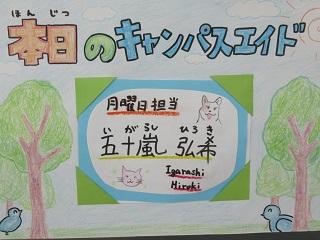 ほんじつ
本日のキャンパスエイド
月曜日担当
いがらし ひろき
五十嵐 弘希
Igarashi
Hiroki